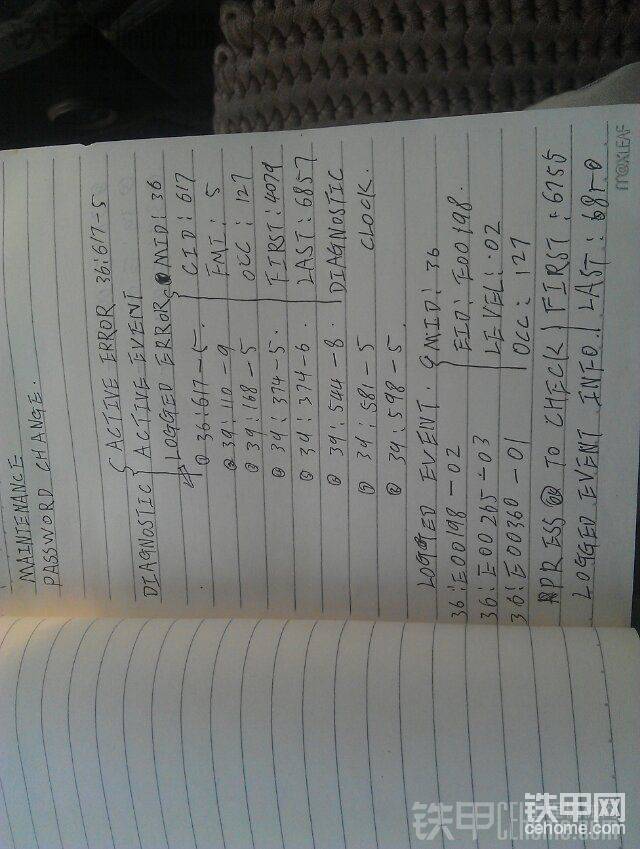 MAINTENANCE
PASSWORD CHANGE.
DIAGNOSTIC
ACTIVE ERROR 36:617-5
ACTIVE EVENT
LOGGED ERROR
① 36:617-5.
② 39:110-9
③ 39:168-5
④ 39:374-5.
⑤ 39:374-6.
⑥ 39:544-8.
⑦ 39:581-5
⑧ 39:598-5.
MID: 36
CID: 617
FMI: 5
OCC: 127
FIRST: 4079
LAST: 6857
DIAGNOSTIC
CLOCK.
LOGGED EVENT.
36:E00198-02
36:E00265-03
36:E00360-01
MID: 36
EID: E00198.
LEVEL: 02
OCC: 127
FIRST: 6755
LAST: 6850
PRESS OK TO CHECK
LOGGED EVENT INFO.
MAXLEAF
铁甲网
cehome.com
铁甲